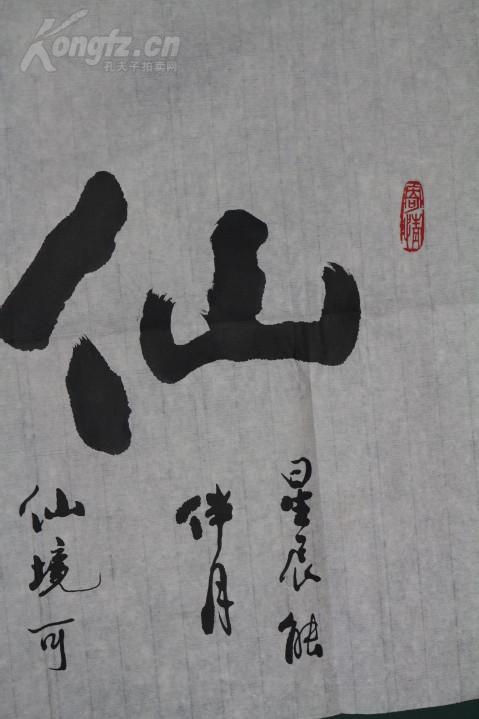 Kongfz.cn
孔夫子拍卖网
仙
星辰能
伴月
仙境可